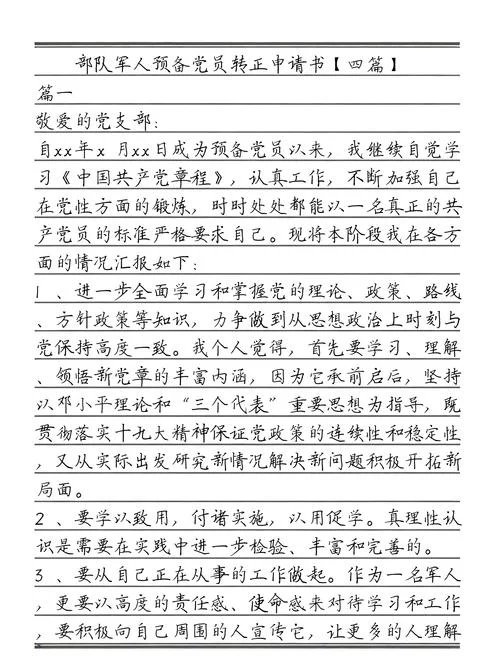 部队军人预备党员转正申请书【四篇】
篇一
敬爱的党支部：
自xx年x 月xx日成为预备党员以来，我继续自觉学
习《中国共产党章程》，认真工作，不断加强自己
在党性方面的锻炼，时时处处都能以一名真正的共
产党员的标准严格要求自己。现将本阶段我在各方
面的情况汇报如下：
1 、进一步全面学习和掌握党的理论、政策、路线
、方针政策等知识，力争做到从思想政治上时刻与
党保持高度一致。我个人觉得，首先要学习、理解
、领悟新党章的丰富内涵，因为它承前启后，坚持
以邓小平理论和“三个代表”重要思想为指导，既
贯彻落实十九大精神保证党政策的连续性和稳定性
，又从实际出发研究新情况解决新问题积极开拓新
局面。
2 、要学以致用，付诸实施，以用促学。真理性认
识是需要在实践中进一步检验、丰富和完善的。
3 、要从自己正在从事的工作做起。作为一名军人
，更要以高度的责任感、使命感来对待学习和工作
，要积极向自己周围的人宣传它，让更多的人理解